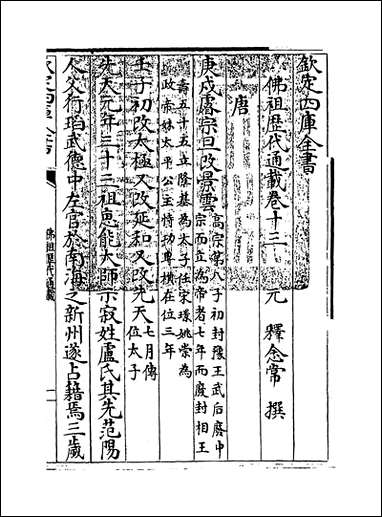 欽定四庫全書
佛祖歴代通載卷十三　元　釋念常　撰
唐
庚戌睿宗旦改景雲
高宗第八子初封豫王武后廢中
宗而立為帝者七年而廢封相王
壽五十五立隆基為太子任宋璟姚崇為
政赤妹太平公主恃功專横在位三年
壬子初改太極又改延和又改先天
七月傳
位太子
先天元年三十三祖恵能大師示寂姓盧氏其先范陽
人父行瑫武德中左官於南海之新州遂占籍焉三歲
佛祖歴代通載
一